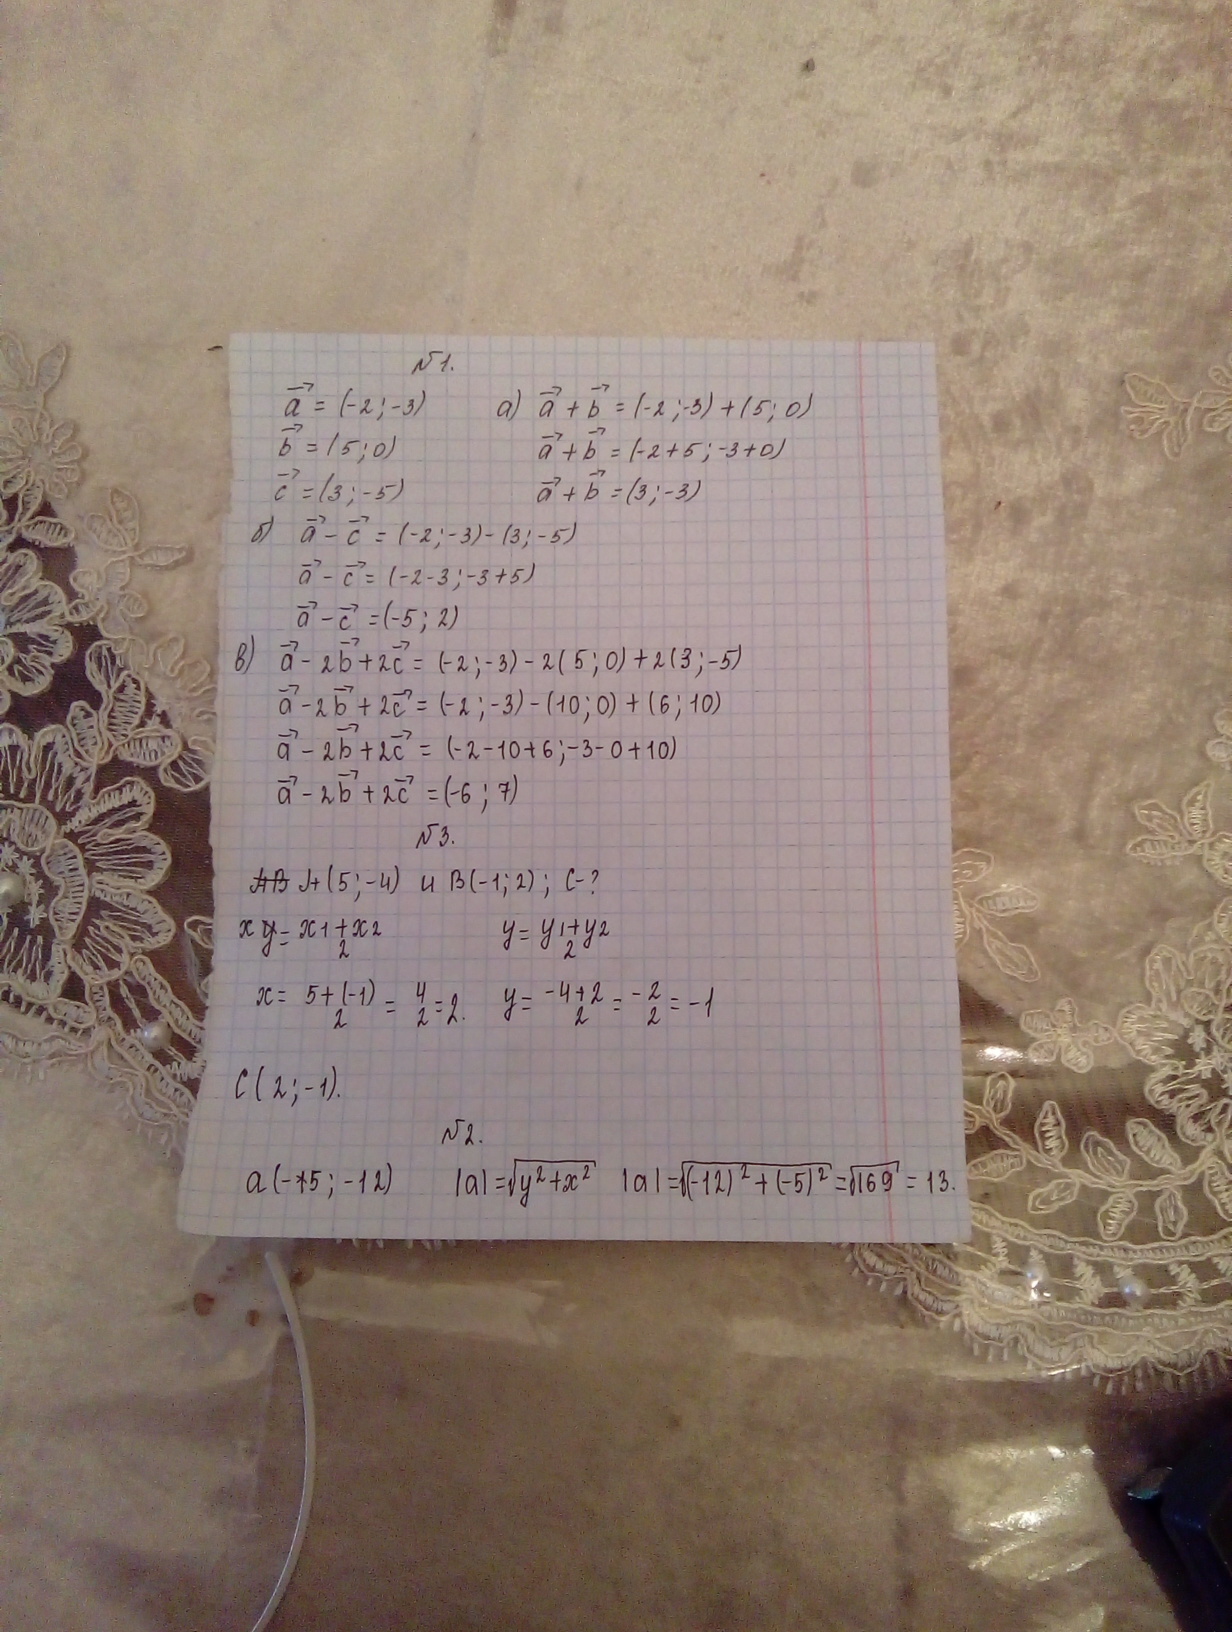 №1.
a⃗ = (-2;-3) а) a⃗ + b⃗ = (-2;-3) + (5;0)
b⃗ = (5;0) a⃗ + b⃗ = (-2+5;-3+0)
c⃗ = (3;-5) a⃗ + b⃗ = (3;-3)
б) a⃗ - c⃗ = (-2;-3) - (3;-5)
a⃗ - c⃗ = (-2-3;-3+5)
a⃗ - c⃗ = (-5;2)
в) a⃗ - 2b⃗ + 2c⃗ = (-2;-3) - 2(5;0) + 2(3;-5)
a⃗ - 2b⃗ + 2c⃗ = (-2;-3) - (10;0) + (6;10)
a⃗ - 2b⃗ + 2c⃗ = (-2-10+6;-3-0+10)
a⃗ - 2b⃗ + 2c⃗ = (-6;7)
№3.
A(5;-4) и B(-1;2); C-?
x = x1+x2/2 y = y1+y2/2
x = 5+(-1)/2 = 4/2 = 2. y = -4+2/2 = -2/2 = -1
C(2;-1).
№2.
a(-5;-12) |a| = √(y²+x²) |a| = √((-12)²+(-5)²) = √169 = 13.